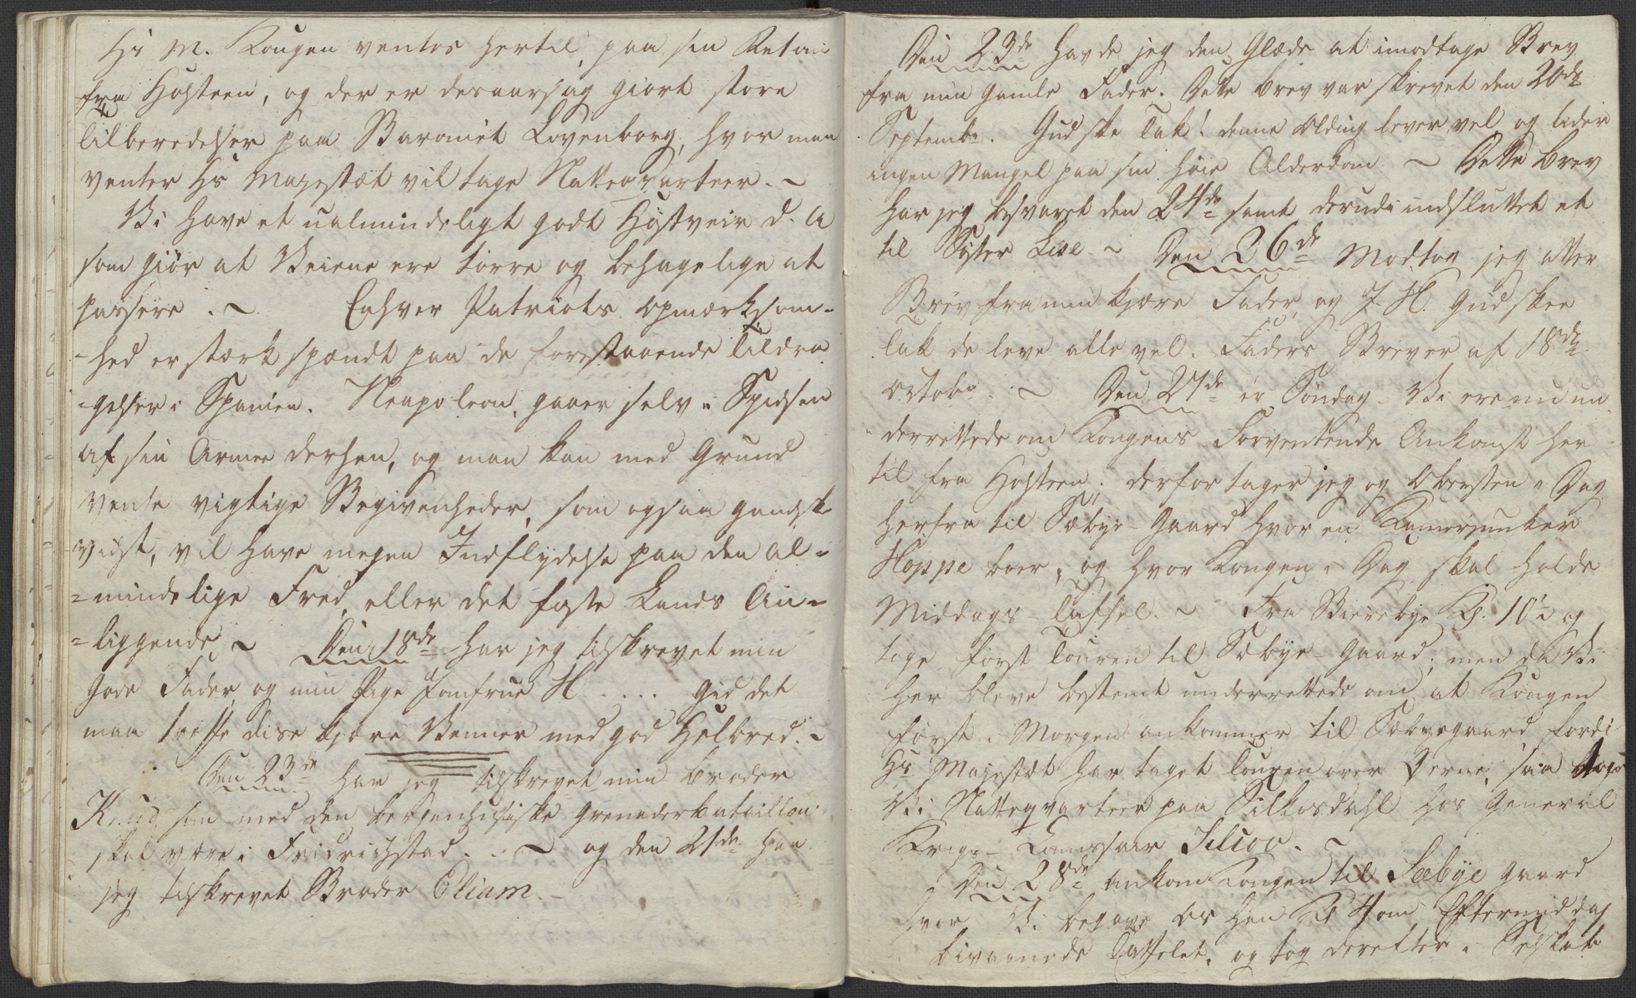 Hs M. Kongen ventes hertil, paa sin Retour
fra Holsteen, og der er desaarsag giort store
Tilberedelser paa Baroniet Lövenborg, hvor man
venter Hs Majestæt vil tage Natteqvarteer. ~
Vi have et ualmindeligt godt Høstveir d. A
som giör at Veiene ere tørre og behagelige at
passere. ~ Enhver Patriots opmærksom-
-hed er stærk spændt paa de forestaaende Tildra
-gelser i Spanien. Neapoleon, gaaer selv i Spidsen
af sin Armee derhen, og man kan med Grund
vente vigtige Begivenheder, som ogsaa gandske
vist, vil have megen Indflydelse paa den al-
=mindelige Fred, eller det faste Lands An-
=liggende. ~ Den 18de har jeg tilskrevet min
Gode Fader, og min Pige Jomfrue H .... Gid det
maa treffe disse kjære Venner med god Helbred. ~
Den 23de har jeg tilskrevet min Broder
Knud, som med den bergenhusiske Grenaderbataillon
skal være i Fridrichstad. .. ~ og den 21de har
jeg tilskrevet Broder Eliam. -
Den 23de havde jeg den Glæde at imodtage Brev
fra min Gamle Fader. Dette Brev var skrevet den 20de
Septembr. Gud ske Tak! denne Olding lever vel og lider
ingen Mangel paa sin høie Alderdom ~ Dette Brev
har jeg besvaret den 24de samt derudi indsluttet et
til Syster Lise ~ Den 26de Modtog jeg atter
Brev fra min kjære Fader, og J. H. Gud skee
Tak de leve alle vel. Faders Brever af 18de
Octobr. ~ Den 27de er Søndag. Vi ere nu un
derrettede om Kongens Forventende Ankomst her
til fra Holsteen; derfor tager jeg og Obersten i Dag
herfra til Sæbye-Gaard hvor en Kamerjunker
Hoppe boer, og hvor Kongen i Dag skal holde
Middags Taffel. ~ Fra Kl. 10½ og
toge først Touren til Sæbye-Gaard; men da Vi
her bleve bestemt underrettede om, at Kongen
først i Morgen ankommer til Sæbyegaard fordi
Hs Majestæt har taget Touren over so toge
Vi Natteqvarteer paa hos General
Krigs-Comissair
Den 28de ankom Kongen til Sæbye Gaard
hvor Vi begave os hen Kl 4 om Eftermiddag
bivaanede Taffelet, og tog derefter i Selskab